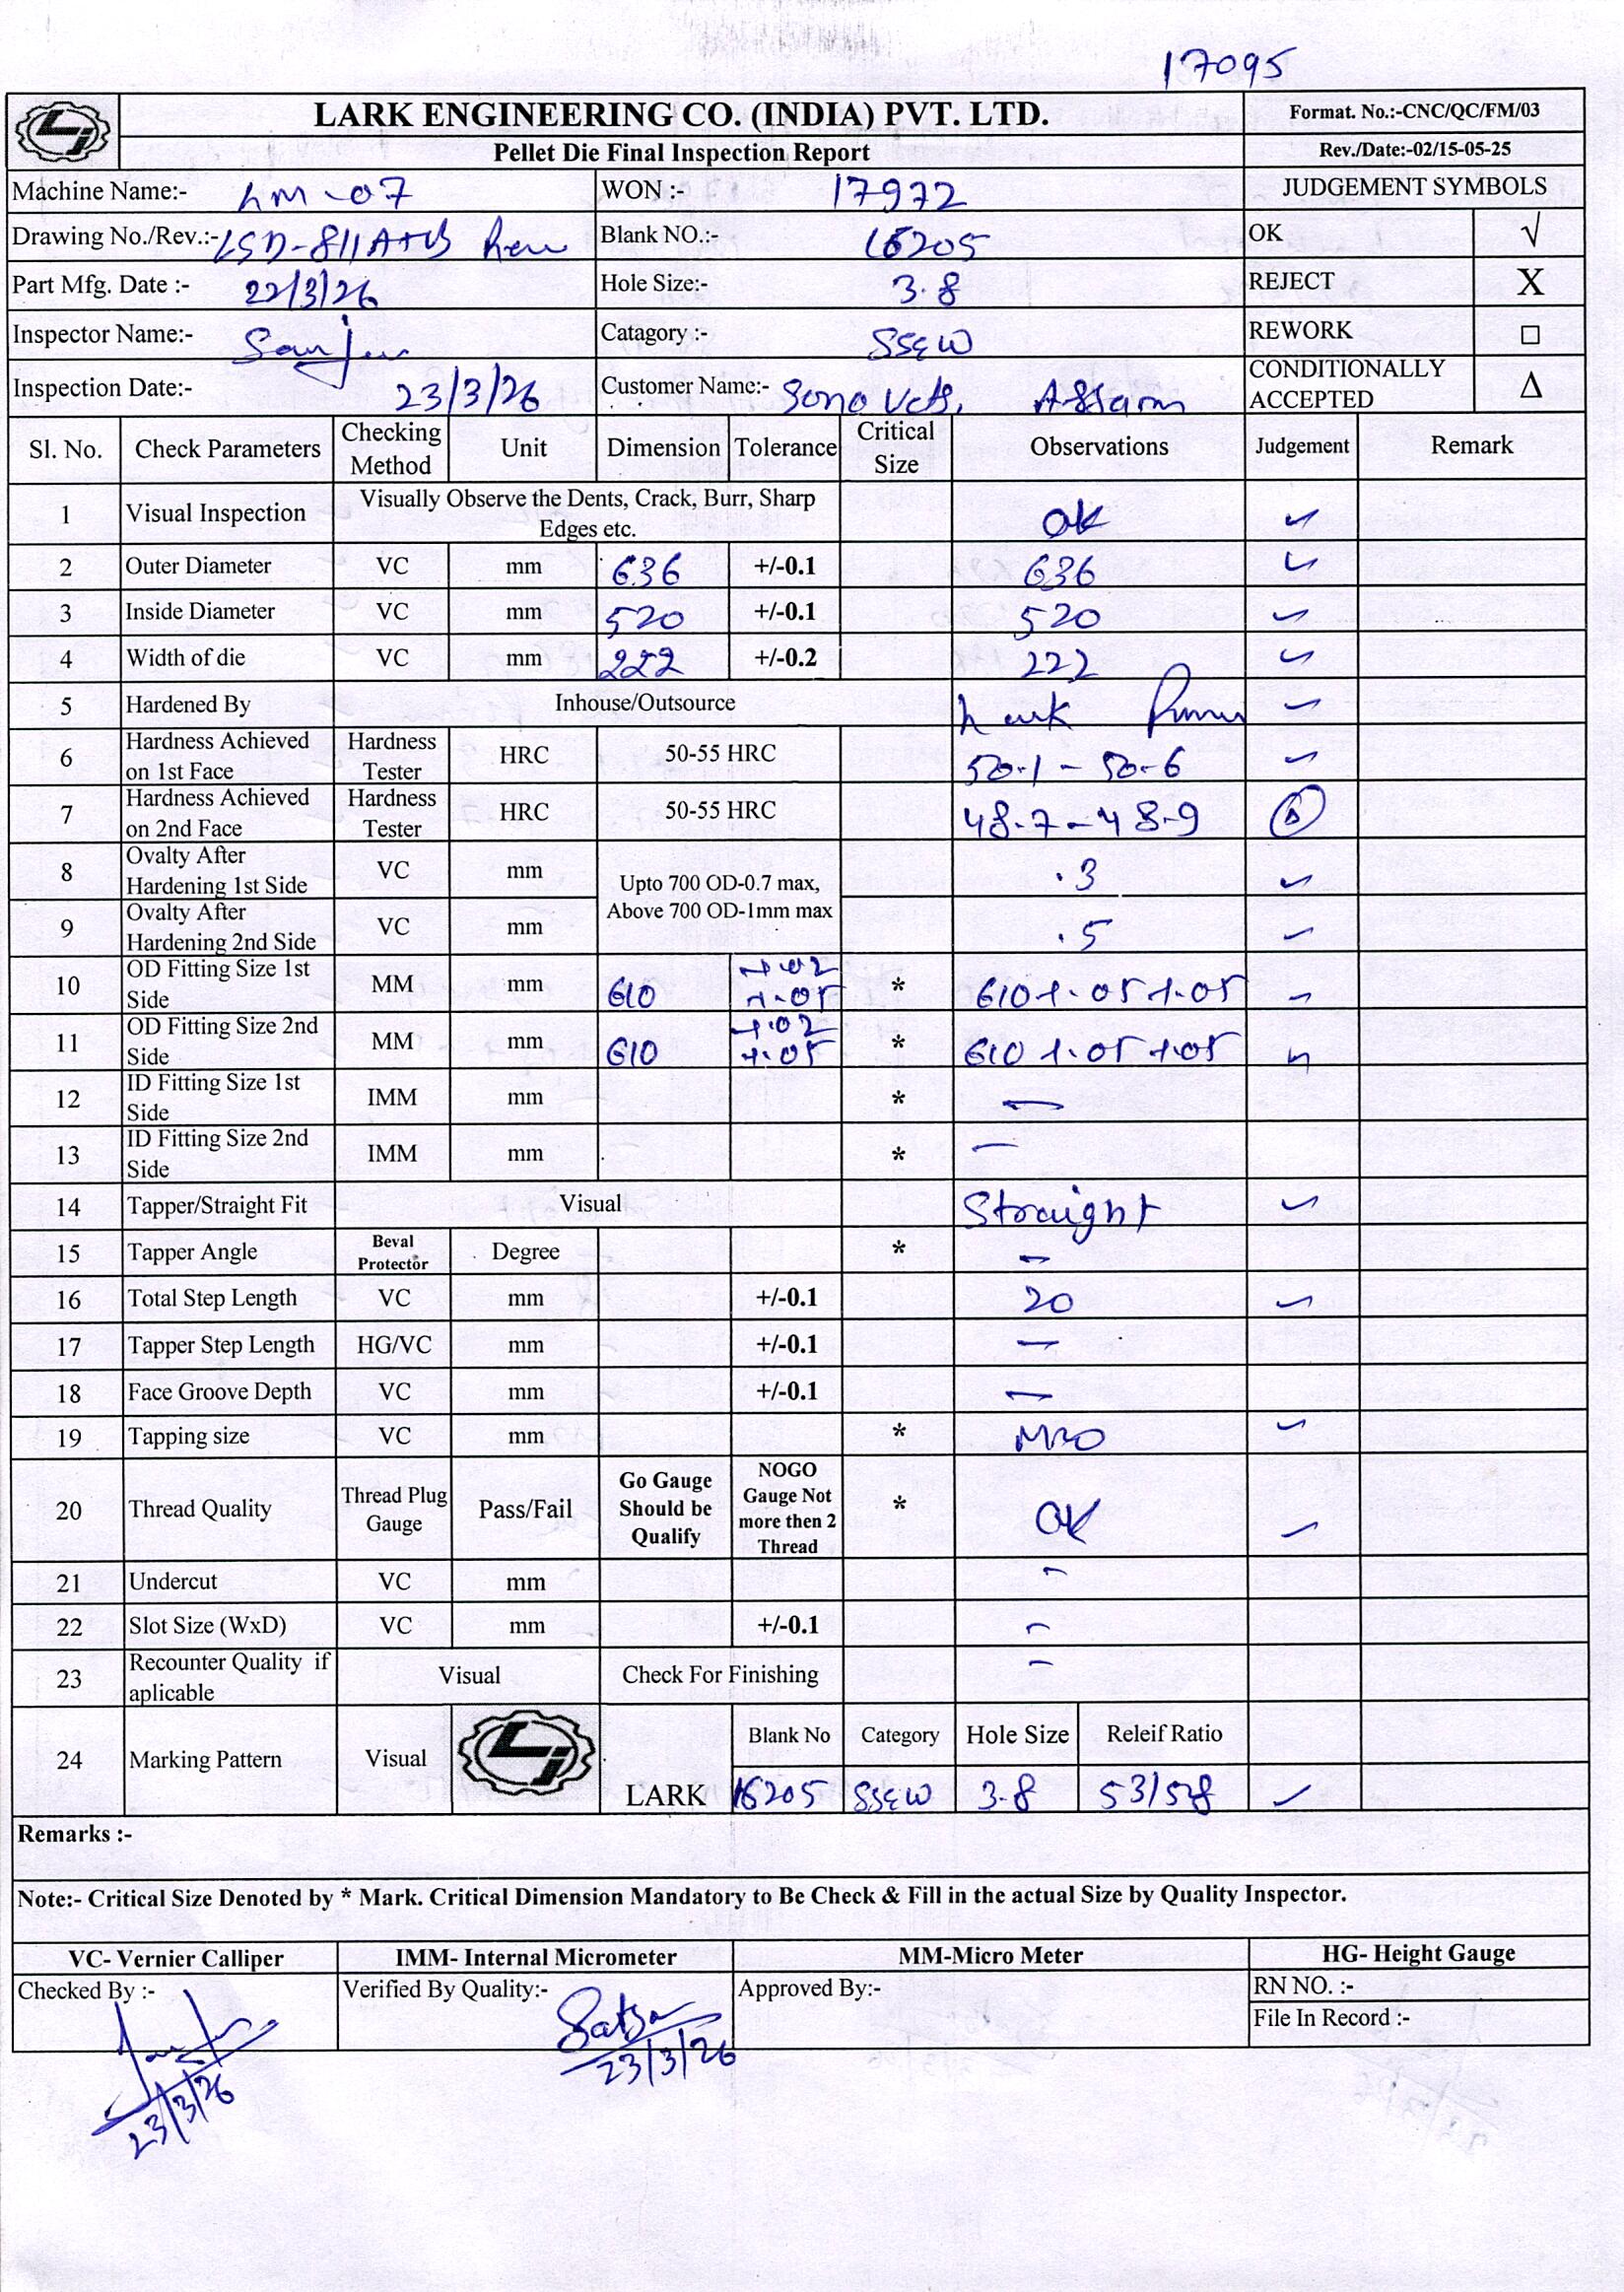 17095
LARK ENGINEERING CO. (INDIA) PVT. LTD. Format. No.:-CNC/QC/FM/03
Pellet Die Final Inspection Report Rev./Date:-02/15-05-25
Machine Name:- LM-07 WON :- 17972 JUDGEMENT SYMBOLS
Drawing No./Rev.:- LSD-811A+B Blank NO.:- 16205 OK √
Part Mfg. Date :- 22/3/26 Hole Size:- 3.8 REJECT X
Inspector Name:- Catagory :- SSEW REWORK □
Inspection Date:- 23/3/26 Customer Name:- Sono Vets, Assam CONDITIONALLY ACCEPTED Δ
Sl. No. Check Parameters Checking Method Unit Dimension Tolerance Critical Size Observations Judgement Remark
1 Visual Inspection Visually Observe the Dents, Crack, Burr, Sharp Edges etc. OK ✓
2 Outer Diameter VC mm 636 +/-0.1 636 ✓
3 Inside Diameter VC mm 520 +/-0.1 520 ✓
4 Width of die VC mm 222 +/-0.2 222 ✓
5 Hardened By Inhouse/Outsource Lark ✓
6 Hardness Achieved on 1st Face Hardness Tester HRC 50-55 HRC 50.1 - 50.6 ✓
7 Hardness Achieved on 2nd Face Hardness Tester HRC 50-55 HRC 48.7 - 48.9
8 Ovalty After Hardening 1st Side VC mm Upto 700 OD-0.7 max, Above 700 OD-1mm max .3 ✓
9 Ovalty After Hardening 2nd Side VC mm .5 ✓
10 OD Fitting Size 1st Side MM mm 610 +.02 +.05 * 610 +.05 +.05 ✓
11 OD Fitting Size 2nd Side MM mm 610 +.02 +.05 * 610 +.05 +.05 ✓
12 ID Fitting Size 1st Side IMM mm * —
13 ID Fitting Size 2nd Side IMM mm * —
14 Tapper/Straight Fit Visual Straight ✓
15 Tapper Angle Beval Protector Degree * —
16 Total Step Length VC mm +/-0.1 20 ✓
17 Tapper Step Length HG/VC mm +/-0.1 —
18 Face Groove Depth VC mm +/-0.1 —
19 Tapping size VC mm * M20 ✓
20 Thread Quality Thread Plug Gauge Pass/Fail Go Gauge Should be Qualify NOGO Gauge Not more then 2 Thread * OK ✓
21 Undercut VC mm —
22 Slot Size (WxD) VC mm +/-0.1 —
23 Recounter Quality if aplicable Visual Check For Finishing —
24 Marking Pattern Visual LARK Blank No Category Hole Size Releif Ratio
16205 SSEW 3.8 53/58 ✓
Remarks :-
Note:- Critical Size Denoted by * Mark. Critical Dimension Mandatory to Be Check & Fill in the actual Size by Quality Inspector.
VC- Vernier Calliper IMM- Internal Micrometer MM-Micro Meter HG- Height Gauge
Checked By :- Verified By Quality:- Approved By:- RN NO. :-
File In Record :-
23/3/26 23/3/26